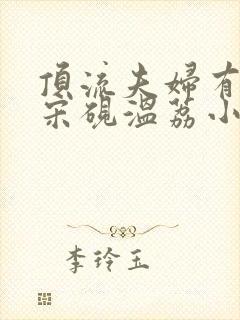 頂流夫婦有
宋硯溫荔小
李玲玉